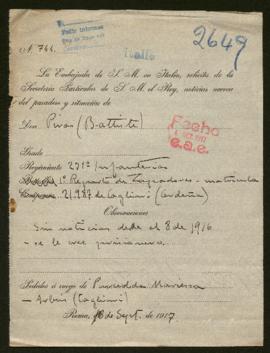 Italia
2649
La Embajada de S. M. en Italia, solicita de la
Secretaría Particular de S. M. el Rey, noticias acerca
del paradero y situación de
Don Piras (Battista)
Fecha
e.a.e.
Grado
Regimiento 231º Infantería
1º Reparto de Zapadores - matrícula
21,987 de Cagliari (Cerdeña)
Observaciones
Sin noticias desde el 8 de 1916
- se le cree prisionero -
Pedidos á ruego de
(Cagliari)
Roma, 18 Sept. de 1917